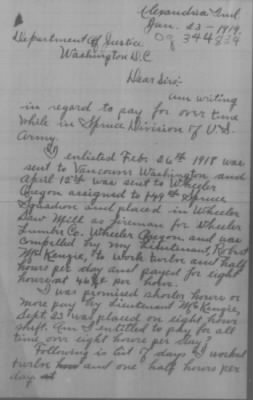 Alexandria Ind.
Jan. 23 - 1919.
Og 344834
Department Of Justice
Washington D.C.
Dear Sirs:-
am writing
in regard to pay for over time
while in Spruce Division of U.S.
Army.
I enlisted Feb. 26th 1918 was
sent to Vancouver Washington and
April 15th was sent to Wheeler
Oregon assigned to 149th Spruce
Squadron and placed in Wheeler
Saw Mill as fireman for Wheeler
Lumber Co. Wheeler Oregon and was
compelled by my Lieutenant, Robert
McKenzie, to work twelve and half
hours per day and payed for eight
hours at 46 ¢ per hour.
I was promised shorter hours or
more pay by Lieutenant McKenzie,
Sept. 23 was placed on eight hour
shift. Am I entitled to pay for all
time over eight hours per day?
Following is list of days I worked
twelve and one half hours per
day